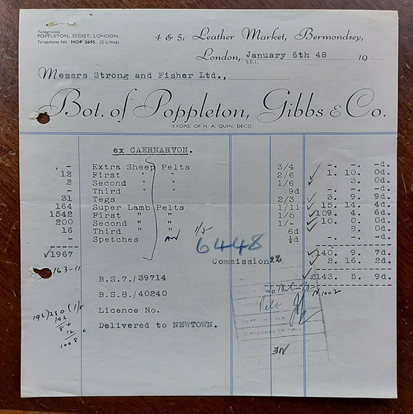 Telegrams
POPPLETON, SEDIST, LONDON.
Telephone No. HOP 2695. (2 Lines)
4 & 5, Leather Market, Bermondsey,
London, January 6th 48 19
S.E.1.
Messrs Strong and Fisher Ltd.,
Bot. of Poppleton, Gibbs & Co.
EXORS. OF H. A. QUIN, DECD.
ex CAERNARVON.
- Extra Sheep Pelts 3/4 -. -. 0d.
12 First " " 2/6 1. 10. 0d.
2 Second " " 1/6 3. 0d.
- Third " " 9d -. 0d.
31 Tegs 2/3 3. 9. 9d.
164 Super Lamb Pelts 1/11 15. 14. 4d
1542 First " " 1/5 109. 4. 6d
200 Second " " 1/- 10. 0. 0d.
16 Third " " 6d 8. 0d.
- Spetches ½d -. 0d.
1967 6448 140. 9. 7d
Commission 2% 2. 16. 2d
163-11 £143. 5. 9d
B.S.7./39714
B.S.8./40240
Licence No.
Delivered to NEWTOWN.